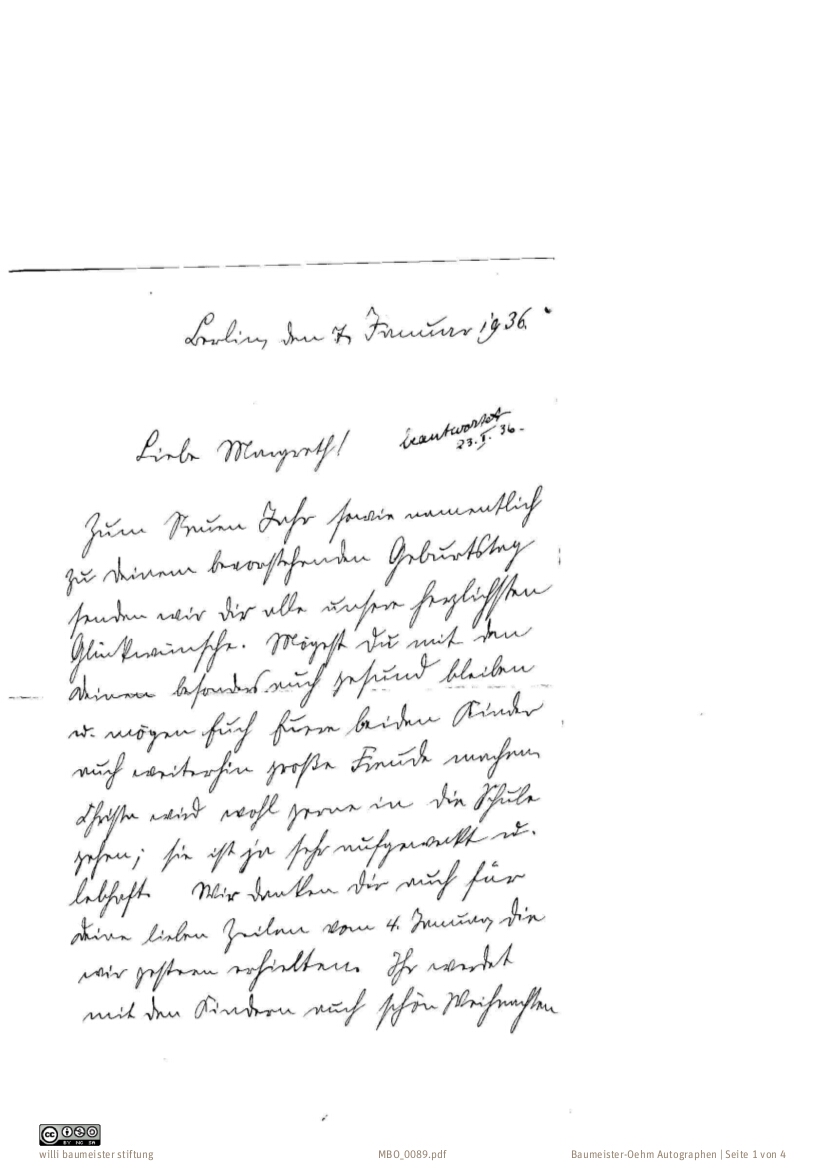 Berlin, den 7. Januar 1936.
Liebe Margreth!
beantwortet
23. I. 36.
Zum Neuen Jahr sowie namentlich
zu Deinem bevorstehenden Geburtstag
senden wir Dir alle unsere herzlichsten
Glückwünsche. Mögest Du mit den
Deinen besonders auch gesund bleiben
u. mögen Euch Eure beiden Kinder
auch weiterhin große Freude machen.
Christa wird wohl gerne in die Schule
gehen; sie ist ja sehr aufgeweckt u.
lebhaft. Wir danken Dir auch für
Deine lieben Zeilen vom 4. Januar, die
wir gestern erhielten. Ihr werdet
mit den Kindern auch schön Weihnachten
CC BY NC SA
willi baumeister stiftung
MBO_0089.pdf
Baumeister-Oehm Autographen | Seite 1 von 4